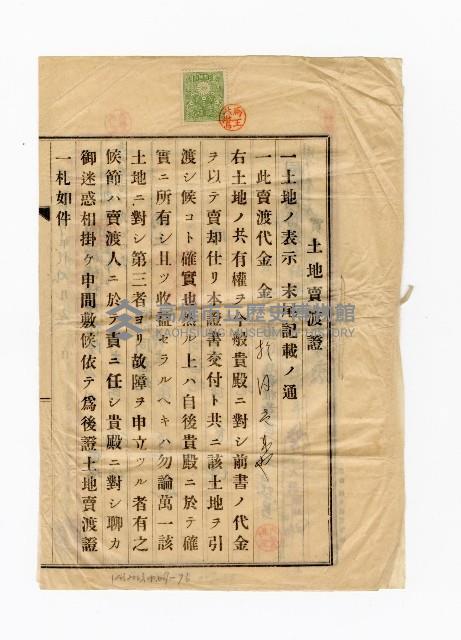 土地賣渡證
一土地ノ表示 末尾記載ノ通
一此賣渡代金 金
右土地ノ共有權ヲ今般貴殿ニ對シ前書ノ代金
ヲ以テ賣却仕リ本證書交付ト共ニ該土地ヲ引
渡シ候コト確實也然ル上ハ自後貴殿ニ於テ確
實ニ所有シ且ツ收益セラルヘキハ勿論萬一該
土地ニ對シ第三者ヨリ故障ヲ申立ツル者有之
候節ハ賣渡人ニ於テ責ニ任シ貴殿ニ對シ聊カ
御迷惑相掛ケ申間敷候依テ爲後證土地賣渡證
一札如件
高雄市立歷史博物館
KAOHSIUNG MUSEUM OF HISTORY